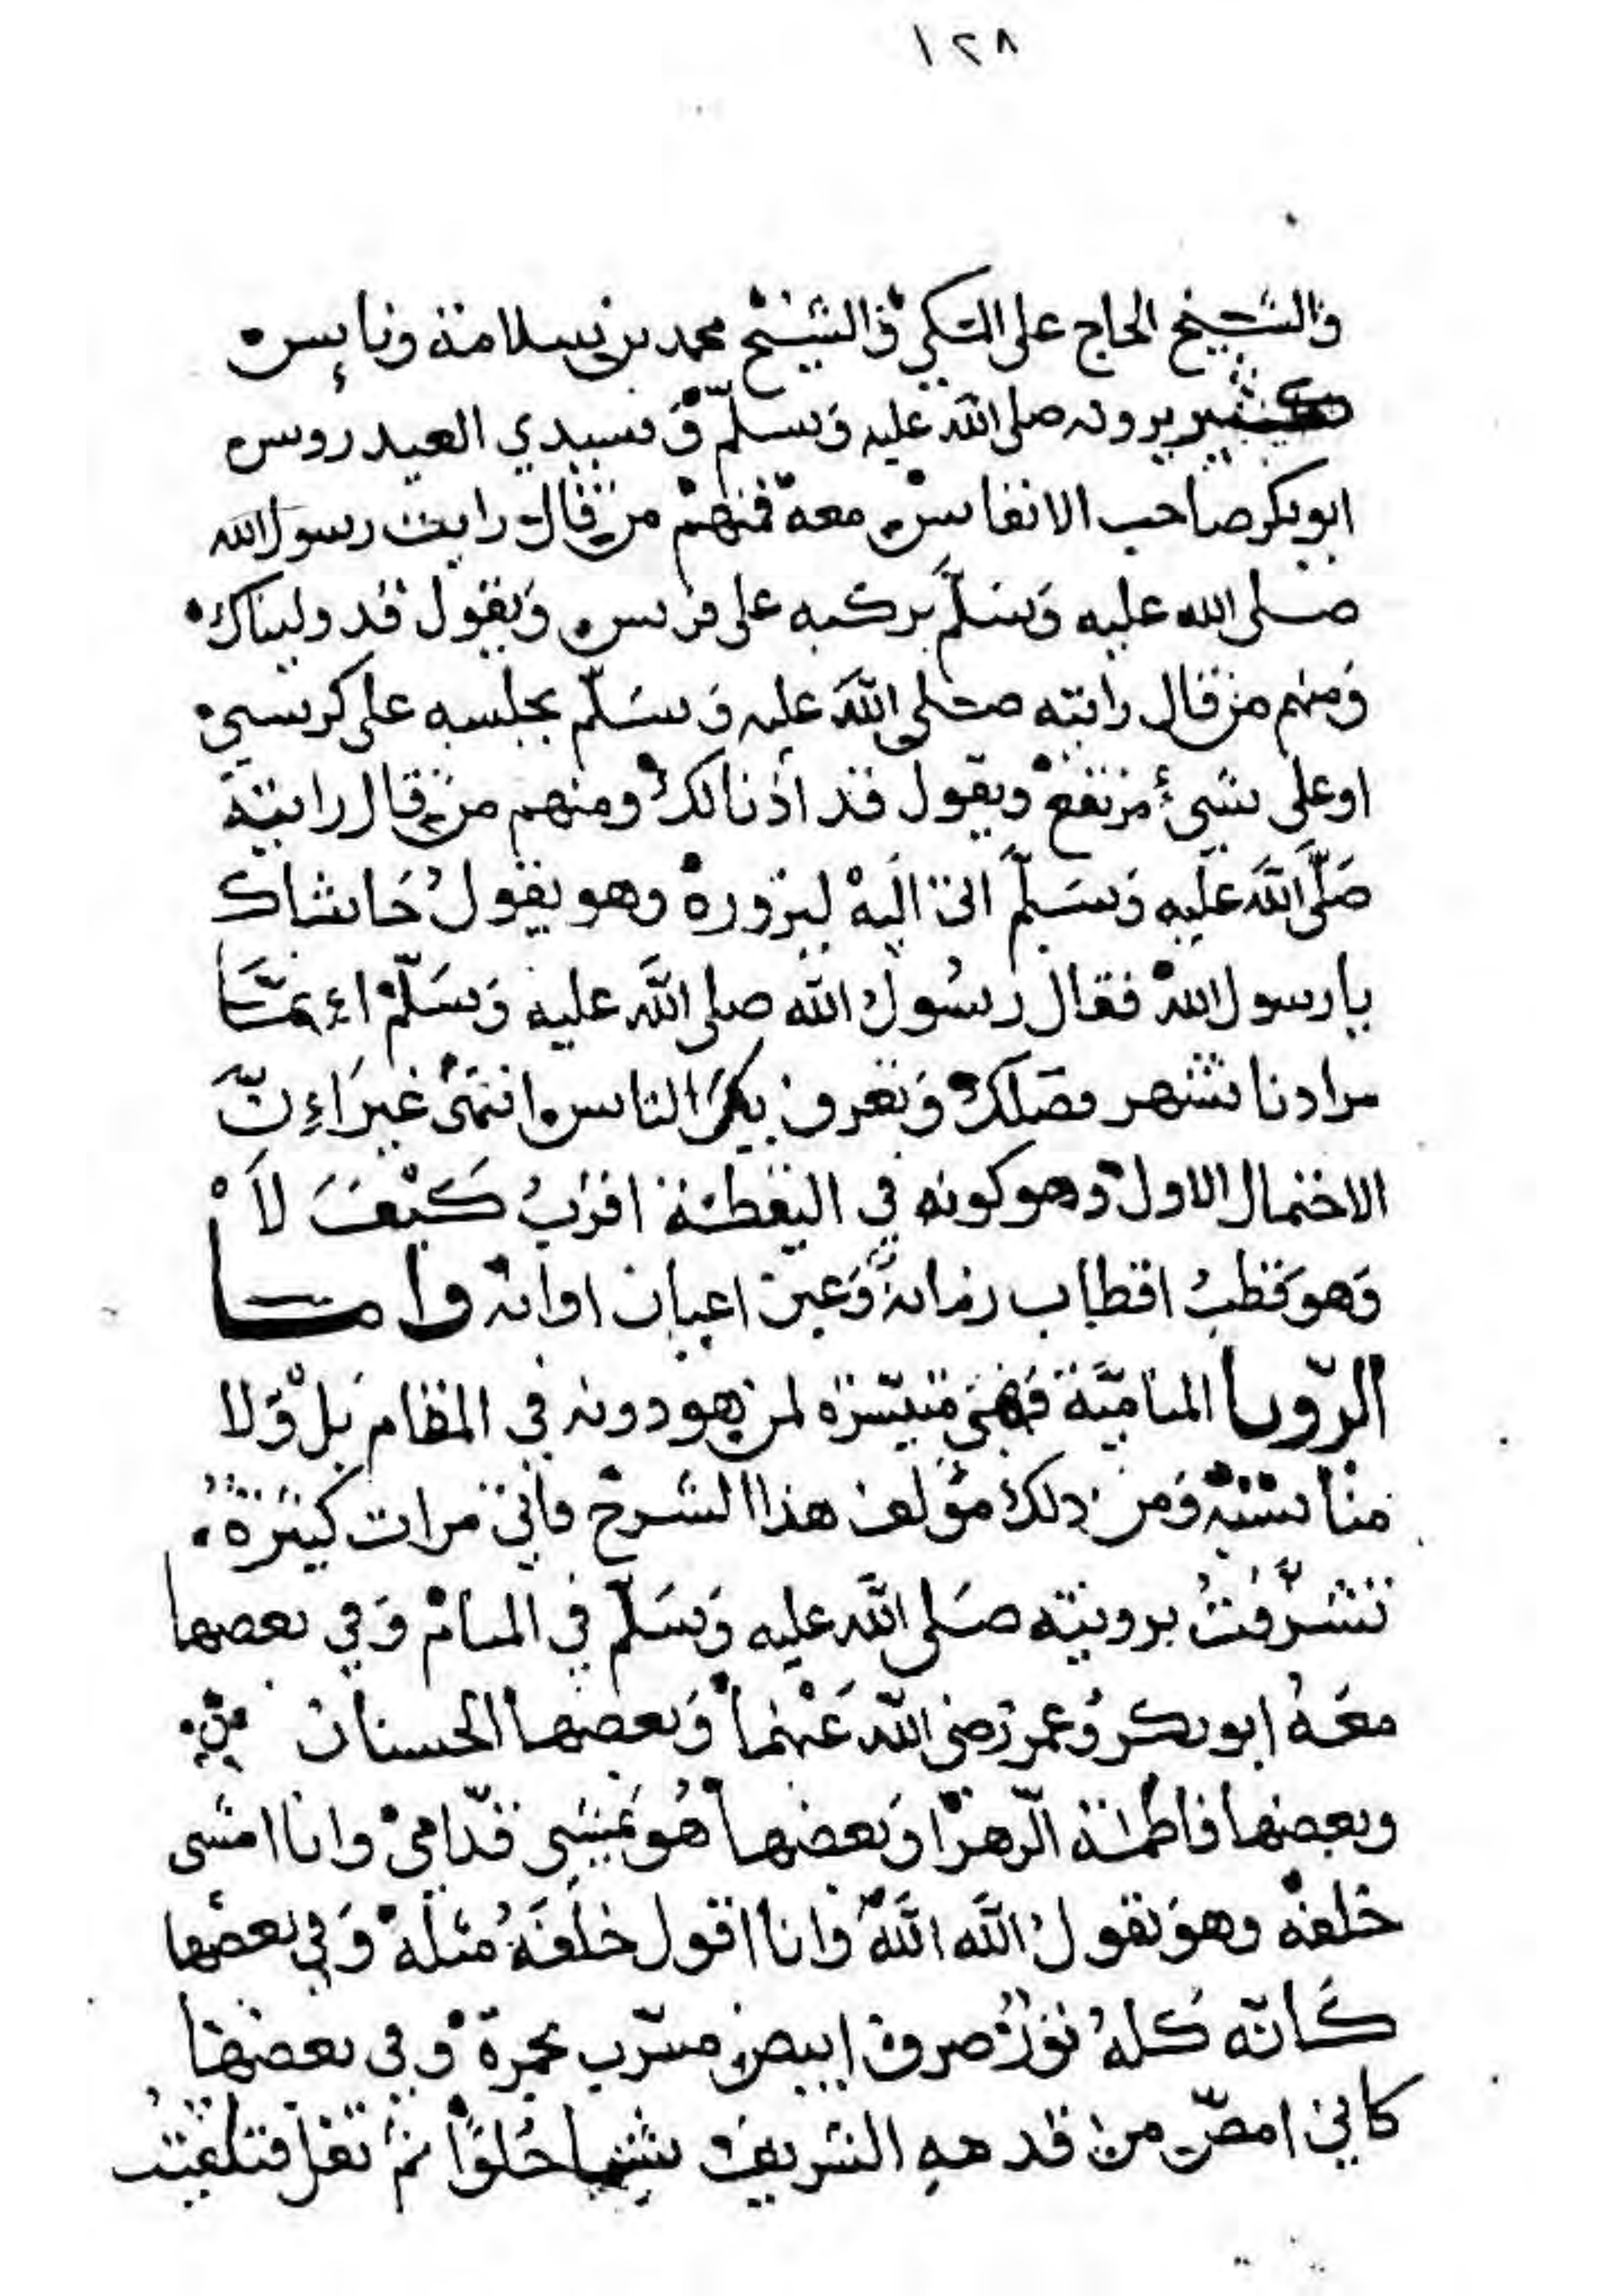 ١٢٨
والشيخ الحاج على التكي والشيخ محمد بن سلامة وناس
كثير يرونه صلى الله عليه وسلم وسيدي العيدروس
ابوبكر صاحب الانفاس معه فمنهم من قال رايت رسول الله
صلى الله عليه وسلم يركبه على فرس ويقول قد وليناك
ومنهم من قال رايته صلى الله عليه وسلم يجلسه على كرسي
او على شيئ مرتفع ويقول قد اذنالك ومنهم من قال رايته
صلى الله عليه وسلم اتى اليه ليزوره وهو يقول حاشاك
يا رسول الله فقال رسول الله صلى الله عليه وسلم إنما
مرادنا نشهر فضلك وتعرف بك الناس انتهى غير إن
الاحتمال الاول وهو كونه في اليقظة اقرب كيف لا
وهو قطب اقطاب زمانه وعين اعيان اوانه واما
الرؤيا المنامية فهي متيسرة لمن هو دونه في المقام بل ولا
مناسبة ومن ذلك مؤلف هذا الشرح فاني مرات كثيرة
تشرفت برويته صلى الله عليه وسلم في المنام وفي بعضها
معه ابوبكر وعمر رضي الله عنهما وبعضها الحسنان
وبعضها فاطمة الزهرا وبعضها هو يمشي قدامي وانا امشى
خلفه وهو يقول الله الله وانا اقول خلفه مثله وفي بعضها
كانه كله نور صرف ابيض مشرب بحمرة وفي بعضها
كاني امص من قدمه الشريف شيا حلوا ثم تفل فتلقيت